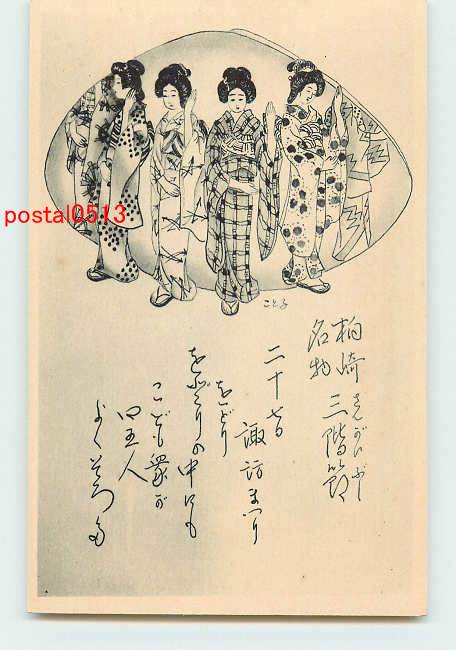 postal0513
ことみ
柏崎
名物 三階節
さんがいぶし
二十七日
諏訪まつり
をどり
をどりの中にも
こども衆が
四五人
よくそろた